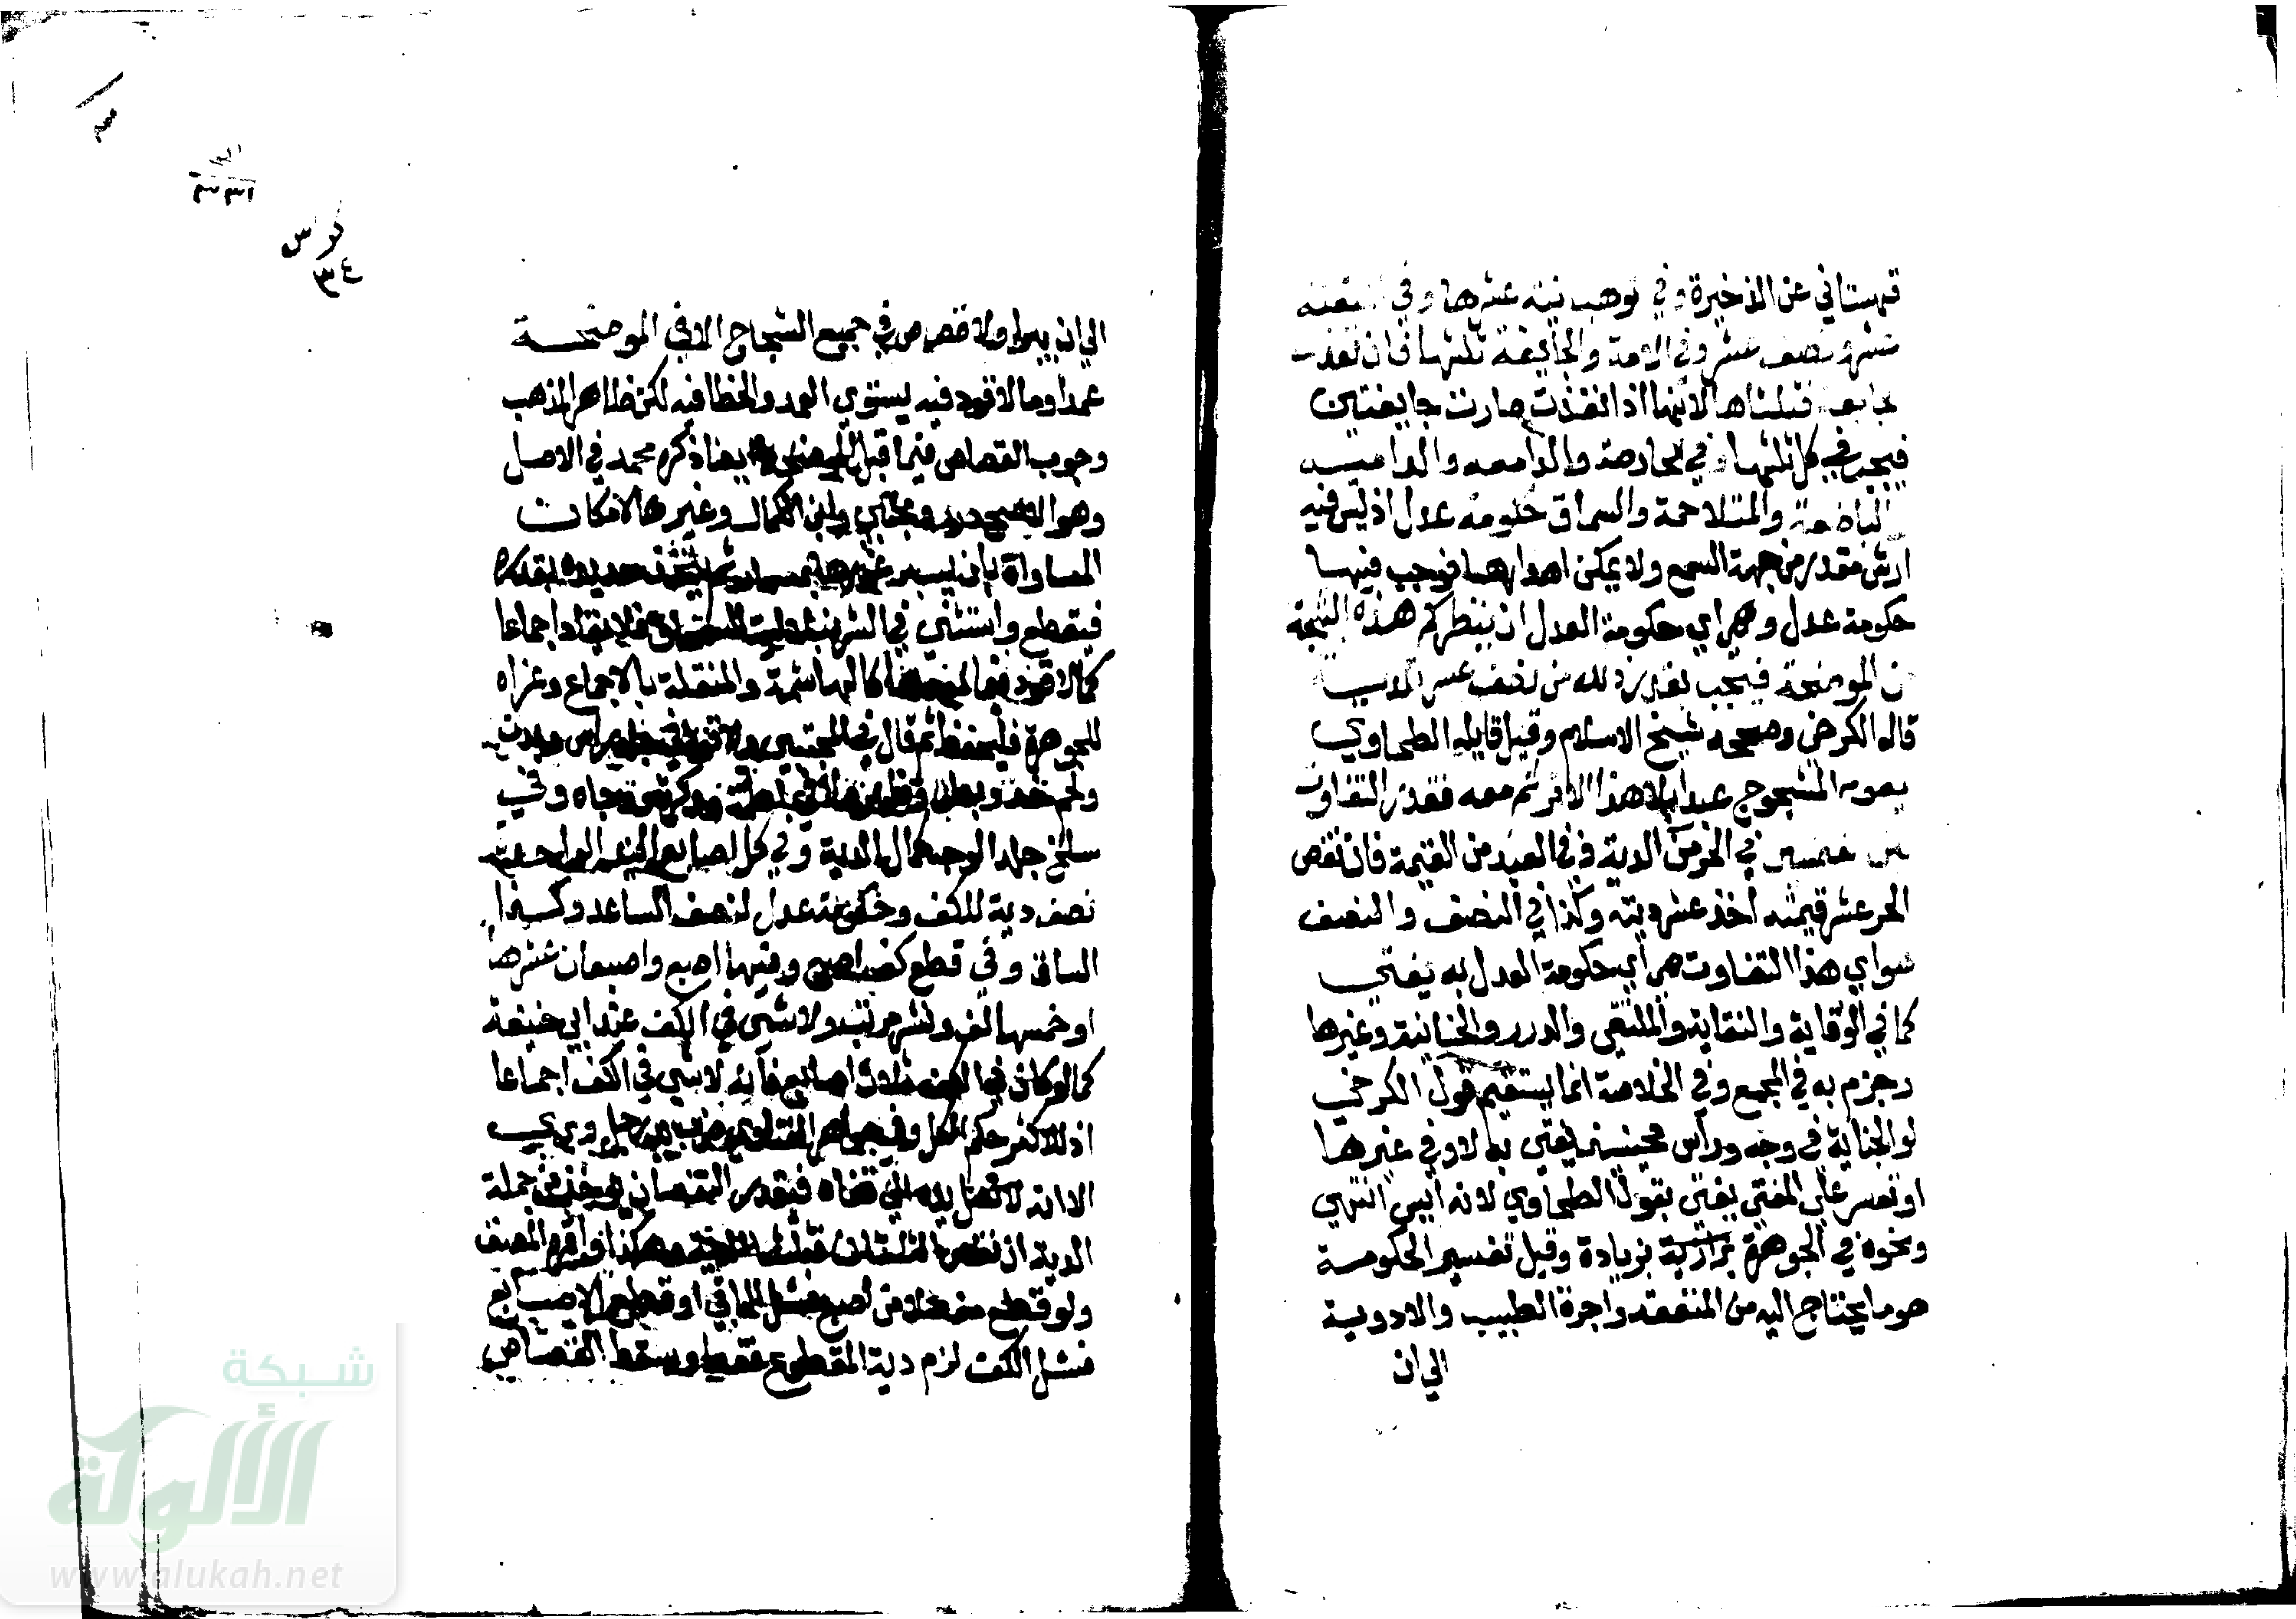 قهستاني عن الذخيرة وفي عشرها وفي
عشر ونصف عشر وفي الامة والجايفة ثلثها فان نفذت
جايفة فثلثاها لانها اذا نفذت صارت جايفتين
فيجب في كل ثلثها وفي الحارصة والدامعة والدامية
والباضعة والمتلاحمة والسمحاق حكومة عدل اذ ليس فيه
ارش مقدر من جهة السمع ولا يمكن اهدارها فوجب فيها
حكومة عدل وهي اي حكومة العدل ان ينظر كم هذه الشجة
من الموضحة فيجب بقدر ذلك من نصف عشر الدية
قاله الكرخي وصححه شيخ الاسلام وقيل قايله الطحاوي
يقوم المشجوج عبدا بلا هذا الاثر ثم معه فقدر التفاوت
بين القيمتين في الحر من الدية وفي العبد من القيمة فان نقص
الحر عشر قيمته اخذ عشر ديته وكذا في النصف والنصف
هو اي هذا التفاوت هي اي حكومة العدل به يفتي
كما في الوقاية والنقاية والملتقى والدرر والخانية وغيرها
وجزم به في المجمع وفي الخلاصة انما يستقيم قول الكرخي
لو الجناية في وجه وراس فحينئذ يفتى به لا وفي غيرها
او تعسر على المفتي يفتي بقول الطحاوي لانه ايسر انتهى
ونحوه في الجوهرة بزيادة وقيل تفسير الحكومة
هو ما يحتاج اليه من النفقة واجرة الطبيب والادوية
الي ان
كراس
٣٤
الي ان يبرا ولا قصاص في جميع الشجاج الا في الموضحة
عمدا وما لا قود فيه يستوي العمد والخطا فيه لكن ظاهر المذهب
وجوب القصاص فيما قبل الموضحة ايضا ذكره محمد في الاصل
وهو الاصح درر ومجتبي وابن الكمال وغيرها لامكان
المساواة بان يسبر غورها بمسبار ثم يتخذ حديدة بقدره
فيقطع واستثني في الشرنبلالية السمحاق فلا يقاد اجماعا
كما لا قود فيما بعدها كالهاشمة والمنقلة بالاجماع وعزاه
للجوهرة فليحفظ ثم قال في المجتبى ولا قود في جلد راس وبدن
ولحم خد وبطن وظهر ولا في لطمة ووكزة ووجاه وفي
سلخ جلد الوجه كمال الدية وفي كل اصابع اليد الواحدة
نصف دية للكف وحكومة عدل لنصف الساعد وكسر
الساق وفي قطع كف وفيها اصبع واصبعان عشرها
او خمسها لف ونشر مرتب ولا شي في الكف عند ابي حنيفة
كما لو كان في الكف ثلاث اصابع فانه لا شي في الكف اجماعا
اذ للاكثر حكم الكل وفي جواهر الفتاوي ضرب يد رجل وبرى
الا انه لا تصل يده الي قفاه فبقدر النقصان يوخذ من جملة
الدية ان نقص الثلثان فثلثا الدية وهكذا واقره المصنف
ولو قطع مفصلا من اصبع فشل الباقي او قطع الاصبع
فشل الكف لزم دية المقطوع فقط وسقط القصاص
شبكة
الألوكة
www.alukah.net